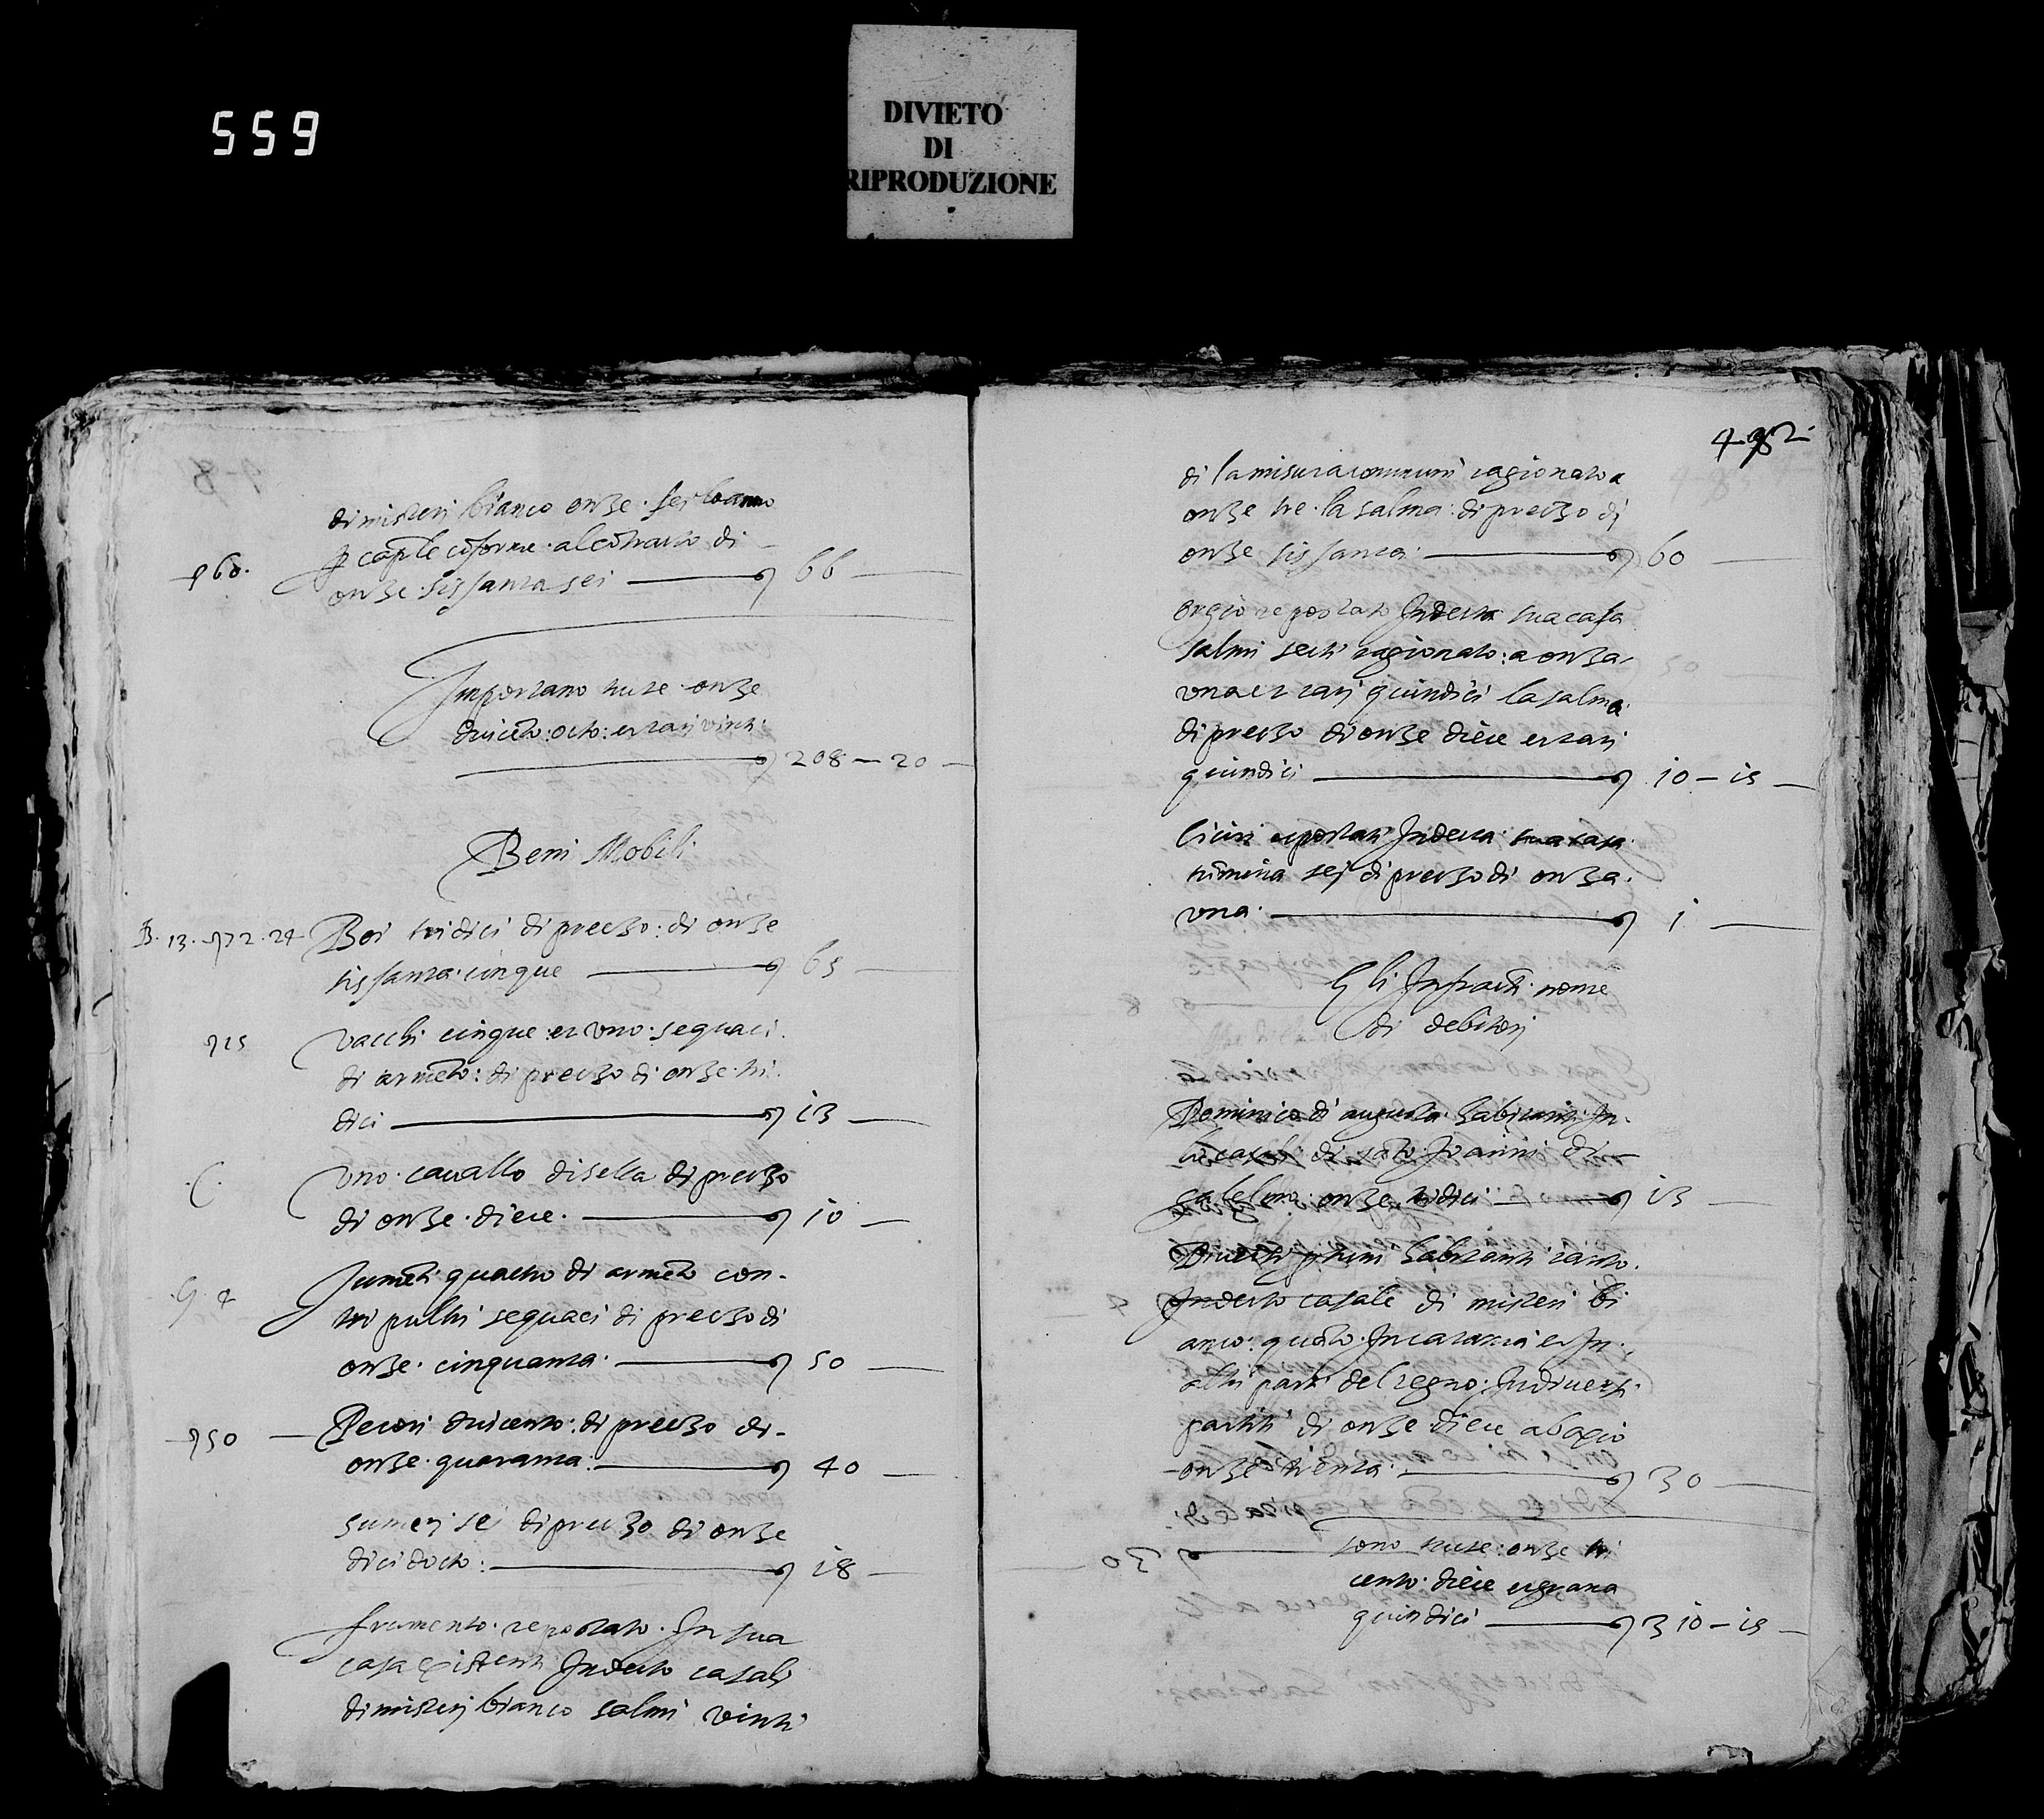 559
DIVIETO
DI
RIPRODUZIONE
di misteri bianco onze sei lo anno
caple cōforme al cōtracto di
60.
onze sissanta sei 66
Importano tucte onze
duicēto: octo: et tarj vinti
208 - 20
Beni Mobili
B. 13. 72. 24 Boi tridici di preczo: di onze
sissanta cinque 65
25 vacchi cinque et uno sequaci
di armēto: di preczo di onze tri
dici 13
C. uno cavallo di sella di preczo
di onze diece. 10
G. 4 Jumēti quactro di armēto con
tri pultri sequaci di preczo di
onze cinquanta 50
50 Pecori duicento: di preczo di
onze quaranta: 40
sumeri sei di preczo di onze
dicidocto: 18
frumento repostato In sua
casa existenti In decto casali
di misterj bianco salmi vinti
di la misura communi ragionato a
onze tre la salma: di preczo di
onze sissanta: 60
orgio repostato In decta sua casa
salmi secti ragionato: a onza
una et tarj quindici la salma
di preczo di onze diece et tarj
quindici 10 - 15
Ciciri repostati In decta sua casa
tūmina sej di preczo di onza
una 1
Gli Infracti nome
di debitorj
Dominico di augusta habitanti In
lo casali di sāto Joanni di
galelmo: onze tridici 13
Diversi persuni habitanti tanto
In decto casale di misteri bi
anco: quāto In catania et In
altri parti del regno: In diversi
partiti di onze diece abaxio
onze trenta 30
sono tucte: onze tri
cento diece et grana
quindici 310 - 15